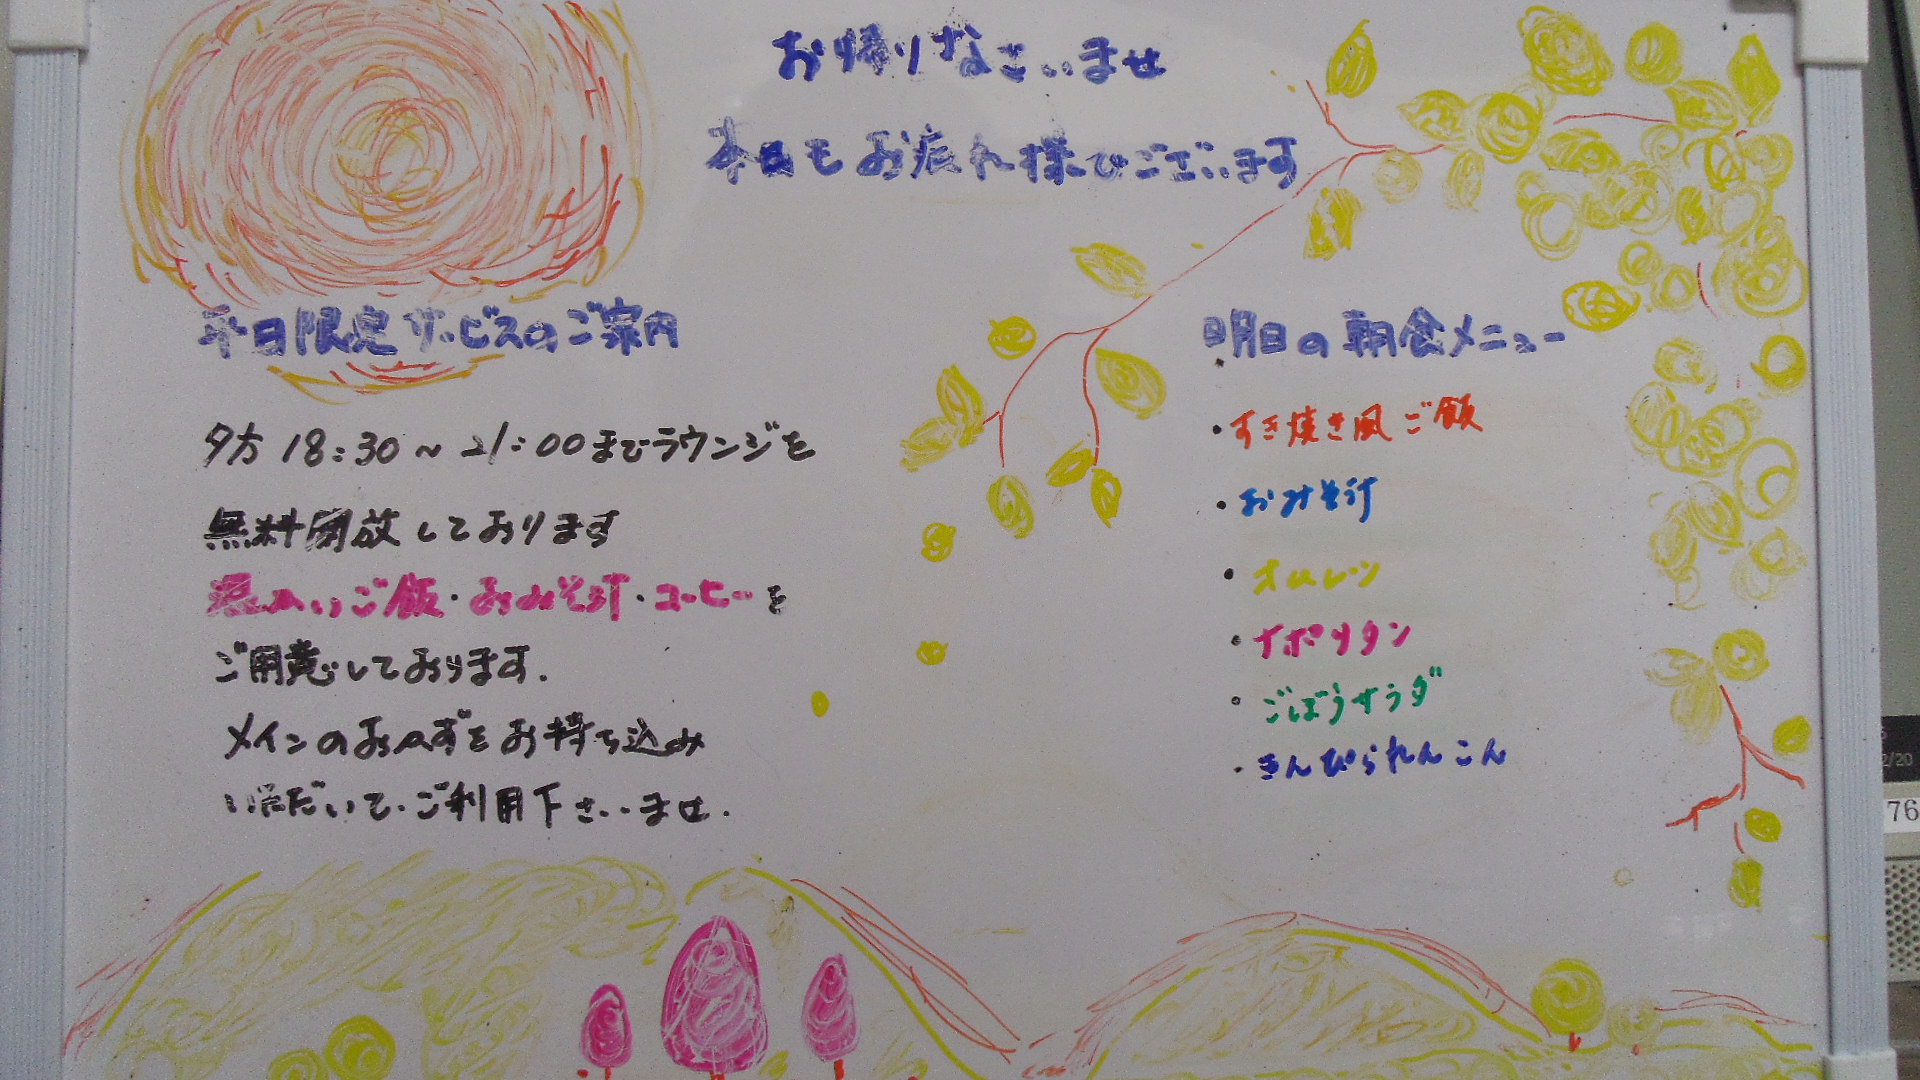 お帰りなさいませ
本日もお疲れ様でございます
平日限定サービスのご案内
夕方18:30～21:00までラウンジを
無料開放しております
温かいご飯・おみそ汁・コーヒーを
ご用意しております.
メインのおかずをお持ち込み
いただいて、ご利用下さいませ.
明日の朝食メニュー
・すき焼き風ご飯
・おみそ汁
・オムレツ
・ナポリタン
・ごぼうサラダ
・きんぴられんこん
2/20
76